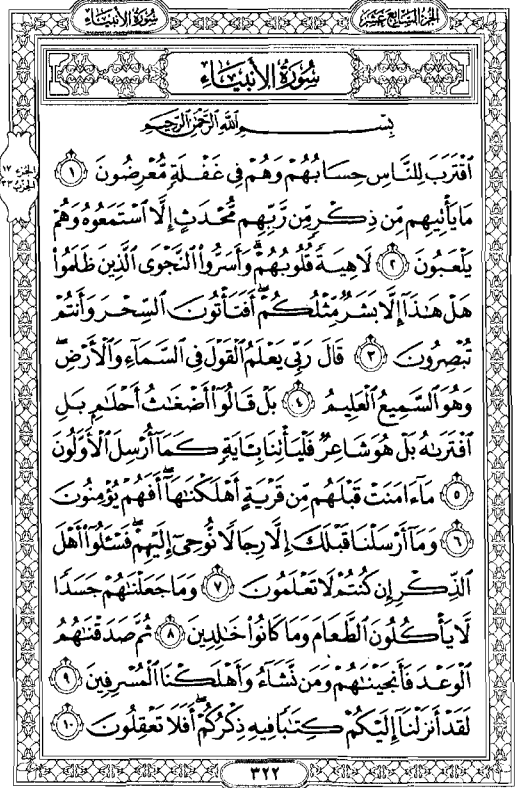 الجزء السابع عشر
سورة الأنبياء
سُورَةُ الأَنْبِيَاءِ
بِسْمِ ٱللَّهِ ٱلرَّحْمَٰنِ ٱلرَّحِيمِ
ٱقْتَرَبَ لِلنَّاسِ حِسَابُهُمْ وَهُمْ فِى غَفْلَةٍ مُّعْرِضُونَ ١
مَا يَأْتِيهِم مِّن ذِكْرٍ مِّن رَّبِّهِم مُّحْدَثٍ إِلَّا ٱسْتَمَعُوهُ وَهُمْ
يَلْعَبُونَ ٢ لَاهِيَةً قُلُوبُهُمْ ۗ وَأَسَرُّوا۟ ٱلنَّجْوَى ٱلَّذِينَ ظَلَمُوا۟
هَلْ هَٰذَآ إِلَّا بَشَرٌ مِّثْلُكُمْ ۖ أَفَتَأْتُونَ ٱلسِّحْرَ وَأَنتُمْ
تُبْصِرُونَ ٣ قَالَ رَبِّى يَعْلَمُ ٱلْقَوْلَ فِى ٱلسَّمَآءِ وَٱلْأَرْضِ ۖ
وَهُوَ ٱلسَّمِيعُ ٱلْعَلِيمُ ٤ بَلْ قَالُوٓا۟ أَضْغَٰثُ أَحْلَٰمٍۭ بَلِ
ٱفْتَرَىٰهُ بَلْ هُوَ شَاعِرٌ فَلْيَأْتِنَا بِـَٔايَةٍ كَمَآ أُرْسِلَ ٱلْأَوَّلُونَ
٥ مَآ ءَامَنَتْ قَبْلَهُم مِّن قَرْيَةٍ أَهْلَكْنَٰهَآ ۖ أَفَهُمْ يُؤْمِنُونَ
٦ وَمَآ أَرْسَلْنَا قَبْلَكَ إِلَّا رِجَالًا نُّوحِىٓ إِلَيْهِمْ ۖ فَسْـَٔلُوٓا۟ أَهْلَ
ٱلذِّكْرِ إِن كُنتُمْ لَا تَعْلَمُونَ ٧ وَمَا جَعَلْنَٰهُمْ جَسَدًا
لَّا يَأْكُلُونَ ٱلطَّعَامَ وَمَا كَانُوا۟ خَٰلِدِينَ ٨ ثُمَّ صَدَقْنَٰهُمُ
ٱلْوَعْدَ فَأَنجَيْنَٰهُمْ وَمَن نَّشَآءُ وَأَهْلَكْنَا ٱلْمُسْرِفِينَ ٩
لَقَدْ أَنزَلْنَآ إِلَيْكُمْ كِتَٰبًا فِيهِ ذِكْرُكُمْ ۖ أَفَلَا تَعْقِلُونَ ١٠
الجزء ١٧
الحزب ٣٣
٣٢٢